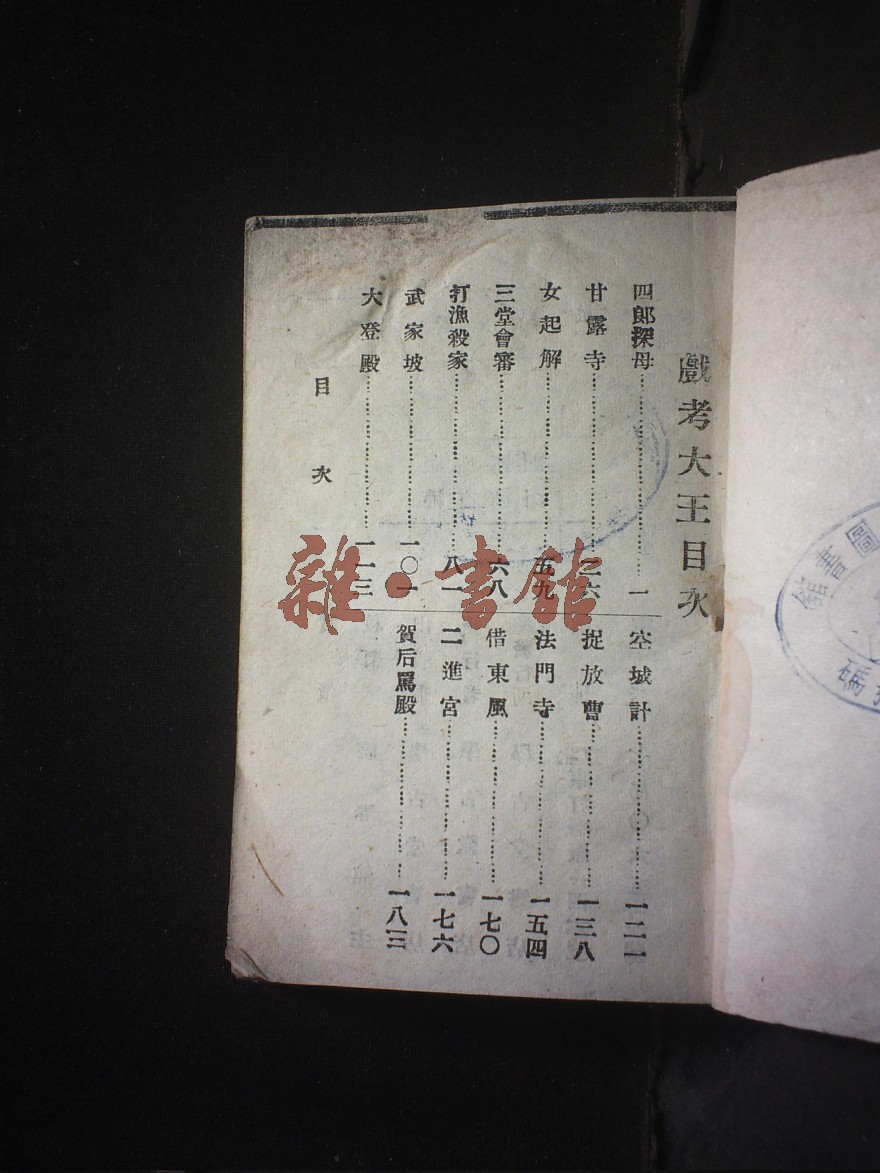 戲考大王目次
四郎探母……………………一
甘露寺……………………六
女起解……………………五九
三堂會審……………………六八
打漁殺家……………………八一
武家坡……………………一〇一
大登殿……………………一一三
空城計……………………一二一
捉放曹……………………一三八
法門寺……………………一五四
借東風……………………一七〇
二進宮……………………一七六
賀后罵殿……………………一八三
目次
雜·書館
圖書館
碼